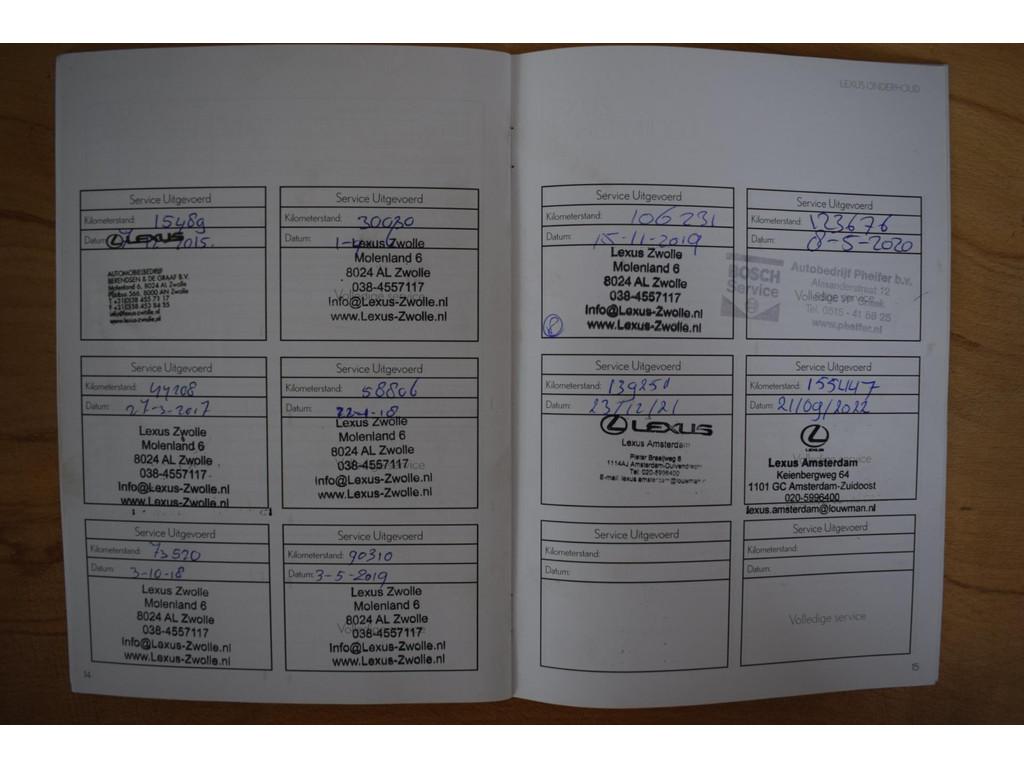 LEXUS ONDERHOUD
Service Uitgevoerd
Kilometerstand: 15489
Datum: 2015.
LEXUS
AUTOMOBIELBEDRIJF
BERENDSEN & DE GRAAF B.V.
Molenland 6, 8024 AL Zwolle
Postbus 566, 8000 AN Zwolle
Service Uitgevoerd
Kilometerstand: 30030
Datum:
Lexus Zwolle
Molenland 6
8024 AL Zwolle
038-4557117
Info@Lexus-Zwolle.nl
www.Lexus-Zwolle.nl
Service Uitgevoerd
Kilometerstand: 44208
Datum: 27-3-2017
Lexus Zwolle
Molenland 6
8024 AL Zwolle
038-4557117
Info@Lexus-Zwolle.nl
www.Lexus-Zwolle.nl
Service Uitgevoerd
Kilometerstand: 58806
Datum: 22-1-18
Lexus Zwolle
Molenland 6
8024 AL Zwolle
038-4557117
Info@Lexus-Zwolle.nl
www.Lexus-Zwolle.nl
Service Uitgevoerd
Kilometerstand: 73520
Datum: 3-10-18
Lexus Zwolle
Molenland 6
8024 AL Zwolle
038-4557117
Info@Lexus-Zwolle.nl
www.Lexus-Zwolle.nl
Service Uitgevoerd
Kilometerstand: 90310
Datum: 3-5-2019
Lexus Zwolle
Molenland 6
8024 AL Zwolle
038-4557117
Info@Lexus-Zwolle.nl
www.Lexus-Zwolle.nl
14
Service Uitgevoerd
Kilometerstand: 106231
Datum: 15-11-2019
Lexus Zwolle
Molenland 6
8024 AL Zwolle
038-4557117
Info@Lexus-Zwolle.nl
www.Lexus-Zwolle.nl
Service Uitgevoerd
Kilometerstand: 123676
Datum: 18-5-2020
BOSCH
Service
Autobedrijf Pheifer b.v.
Alexanderstraat 12
Volledige service
Tel. 0515 - 41 68 25
www.pheifer.nl
Service Uitgevoerd
Kilometerstand: 139250
Datum: 23/12/21
LEXUS
Lexus Amsterdam
Pieter Braaijweg 6
1114AJ Amsterdam-Duivendrecht
Tel: 020-5996400
E-mail: lexus.amsterdam@louwman.n
Service Uitgevoerd
Kilometerstand: 155447
Datum: 21/09/2022
LEXUS
Lexus Amsterdam
Keienbergweg 64
1101 GC Amsterdam-Zuidoost
020-5996400
lexus.amsterdam@louwman.nl
Service Uitgevoerd
Kilometerstand:
Datum:
Service Uitgevoerd
Kilometerstand:
Datum:
Volledige service
15